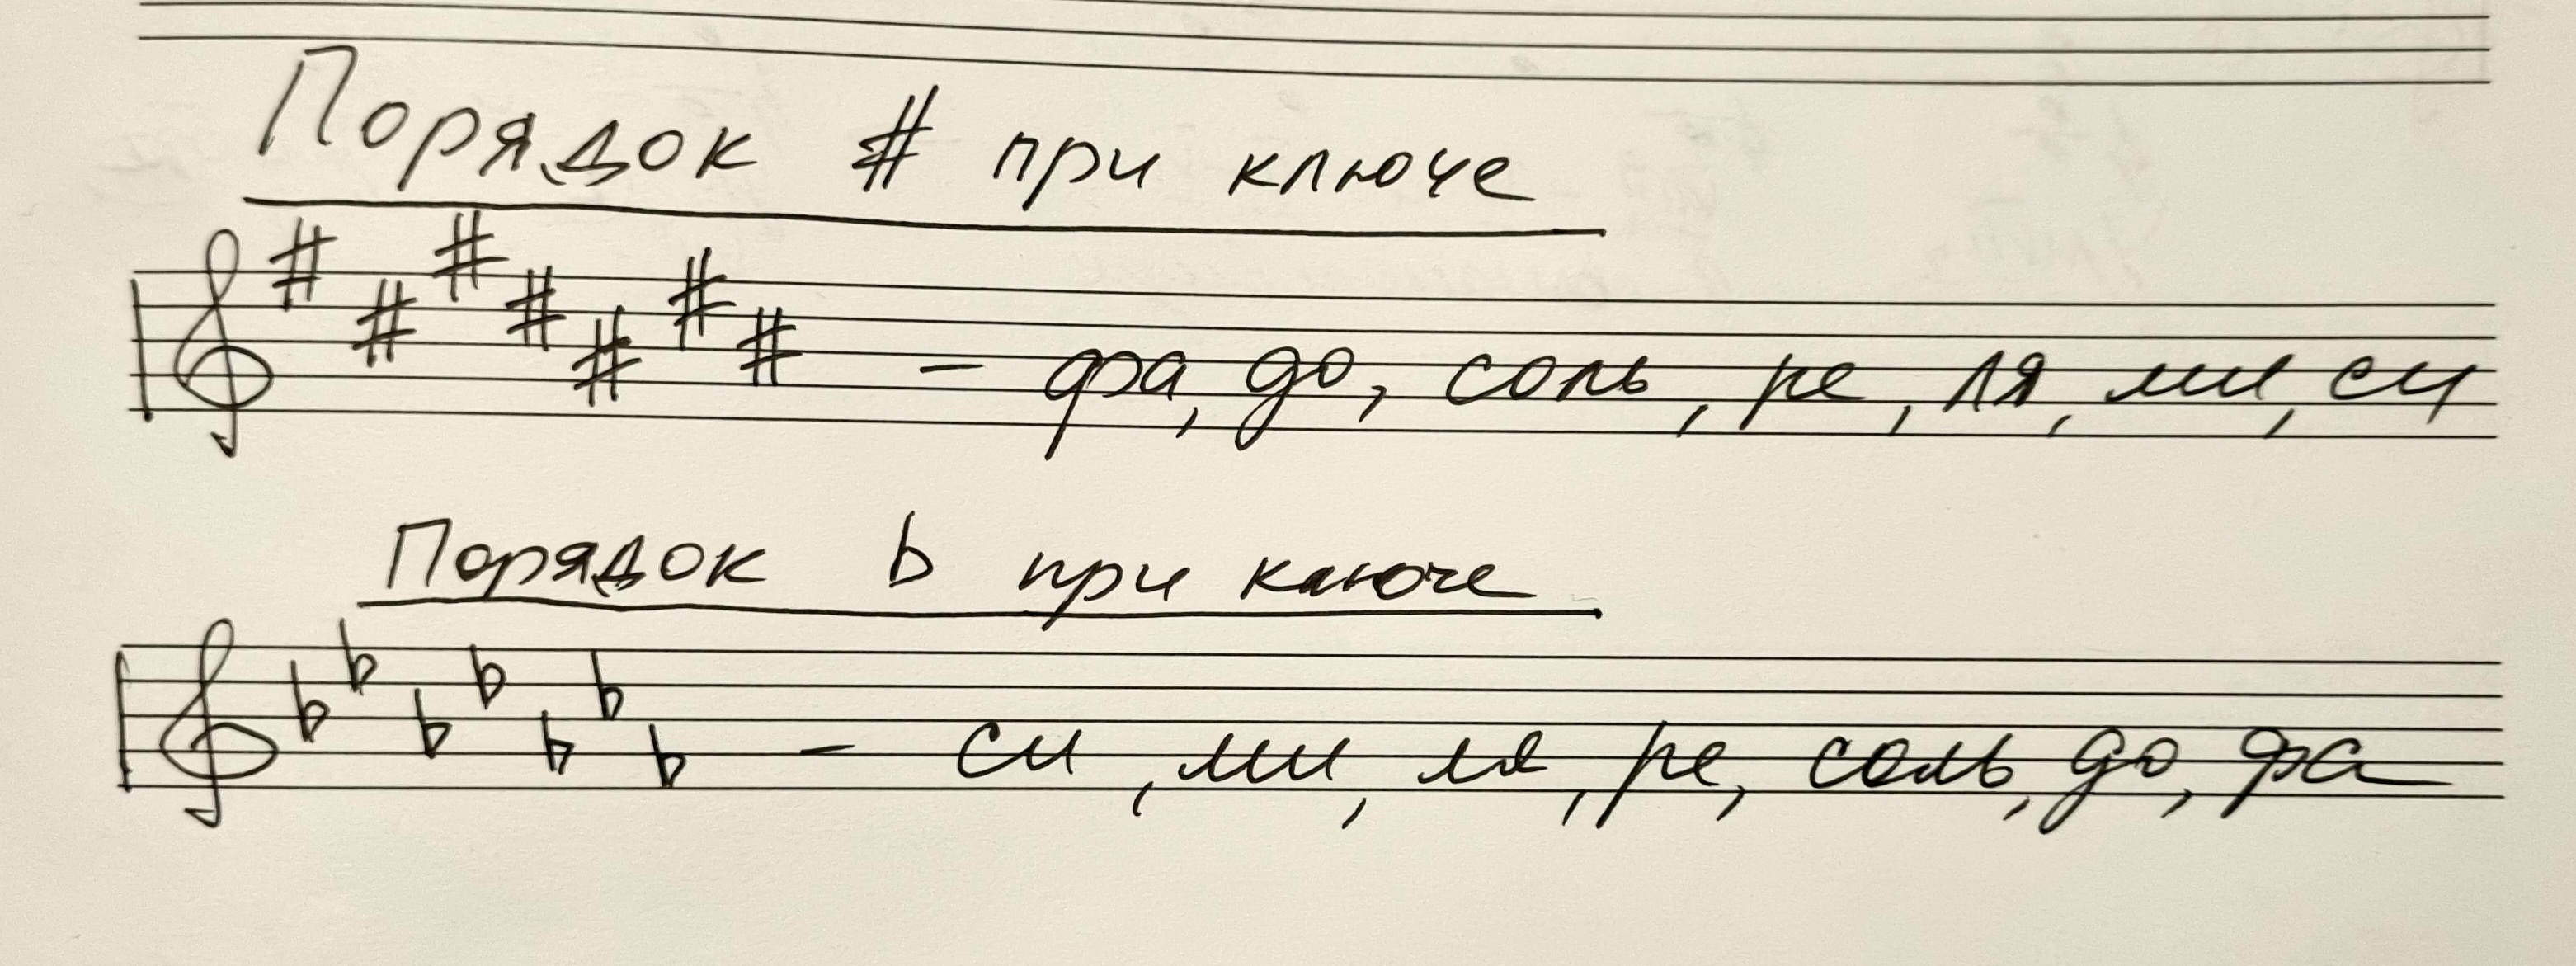 Порядок # при ключе
– фа, до, соль, ре, ля, ми, си
Порядок b при ключе
– си, ми, ля, ре, соль, до, фа